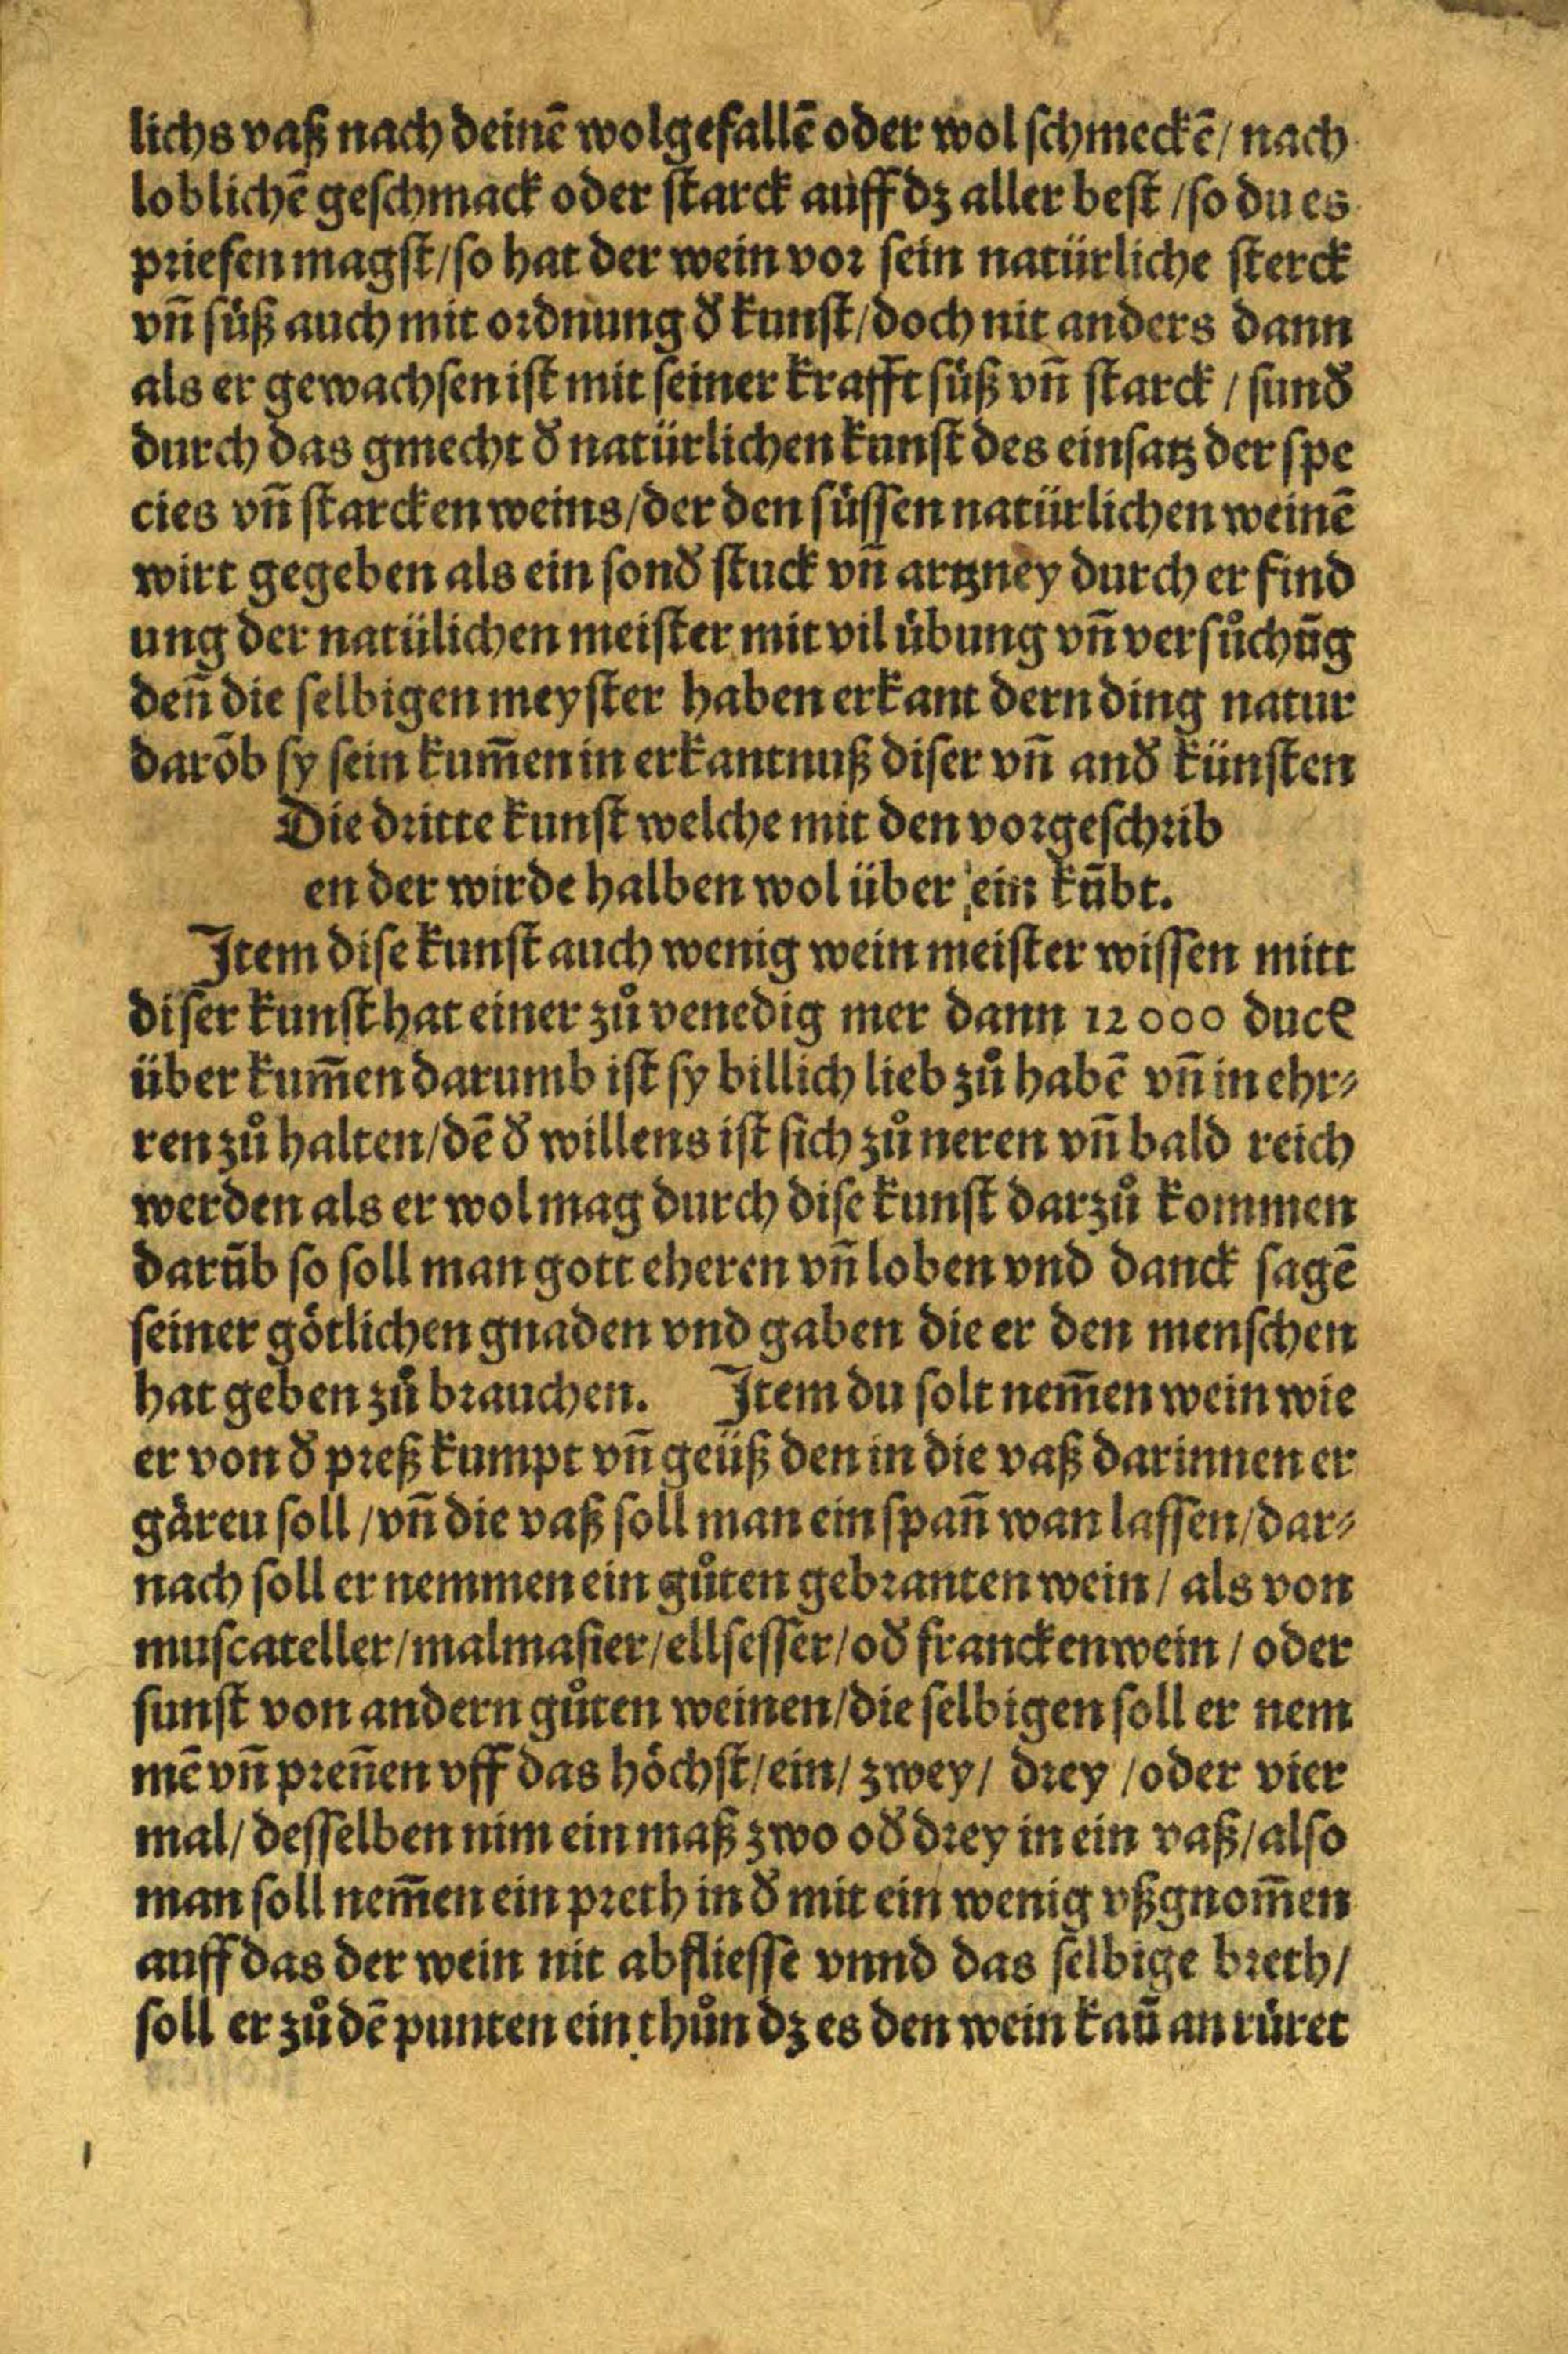 lichs vaß nach deinē wolgefallē oder wol schmeckē/ nach
loblichē geschmack oder starck auff dz aller best /so du es
priefen magst/so hat der wein vor sein natürliche sterck
vñ süß auch mit ordnung đ kunst/doch nit anders dann
als er gewachsen ist mit seiner krafft süß vñ starck / sunđ
durch das gmecht đ natürlichen kunst des einsatz der spe
cies vñ starcken weins/der den süssen natürlichen weinē
wirt gegeben als ein sonđ stuck vñ artzney durch er find
ung der natülichen meister mit vil übung vñ versůchūg
deñ die selbigen meyster haben erkant dern ding natur
darōb sy sein kum̄en in erkantnuß diser vñ anđ künsten
Die dritte kunst welche mit den vorgeschrib
en der wirde halben wol über ein kūbt.
Item dise kunst auch wenig wein meister wissen mitt
diser kunst hat einer zů venedig mer dann 12000 ducꝭ
über kum̄en darumb ist sy billich lieb zů habē vñ in ehr⸗
ren zů halten/dē đ willens ist sich zů neren vñ bald reich
werden als er wol mag durch dise kunst darzů kommen
darūb so soll man gott eheren vñ loben vnd danck sagē
seiner götlichen gnaden vnd gaben die er den menschen
hat geben zů brauchen. Item du solt nem̄en wein wie
er von đ preß kumpt vñ geüß den in die vaß darinnen er
gäreu soll /vñ die vaß soll man ein spañ wan lassen/dar⸗
nach soll er nemmen ein gůten gebranten wein/ als von
muscateller/malmasier/ellsesser/ođ franckenwein/ oder
sunst von andern gůten weinen/die selbigen soll er nem
mē vñ preñen vff das höchst/ein/ zwey/ drey /oder vier
mal/ desselben nim ein maß zwo ođ drey in ein vaß/also
man soll nem̄en ein preth in đ mit ein wenig vßgnom̄en
auff das der wein nit abfliesse vnnd das selbige breth/
soll er zů dē punten ein thůn dz es den wein kaū an rüret